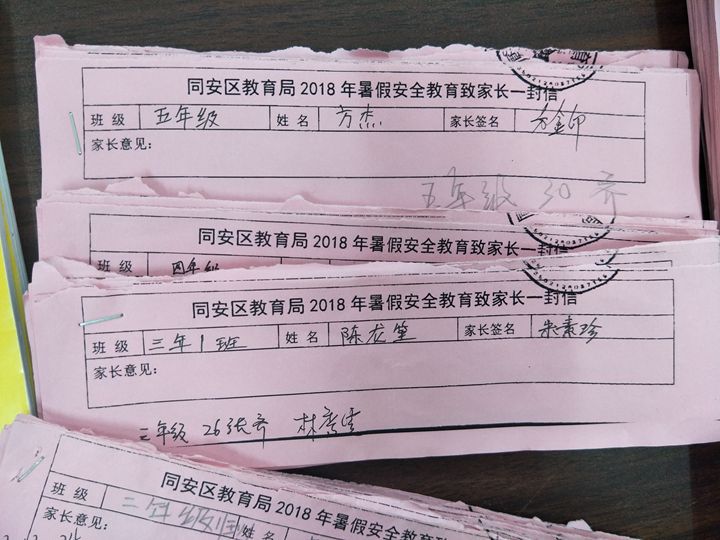 同安区教育局2018年暑假安全教育致家长一封信
班级 五年级 姓名 方杰 家长签名
家长意见：
五年级 30 齐
同安区教育局2018年暑假安全教育致家长一封信
班级 四年级
同安区教育局2018年暑假安全教育致家长一封信
班级 三年1班 姓名 陈龙 家长签名 朱素珍
家长意见：
三年级 26张齐 林
同安区教育局2018年暑假安全教育致家长一封信
班级 二年级 姓名
家长意见：